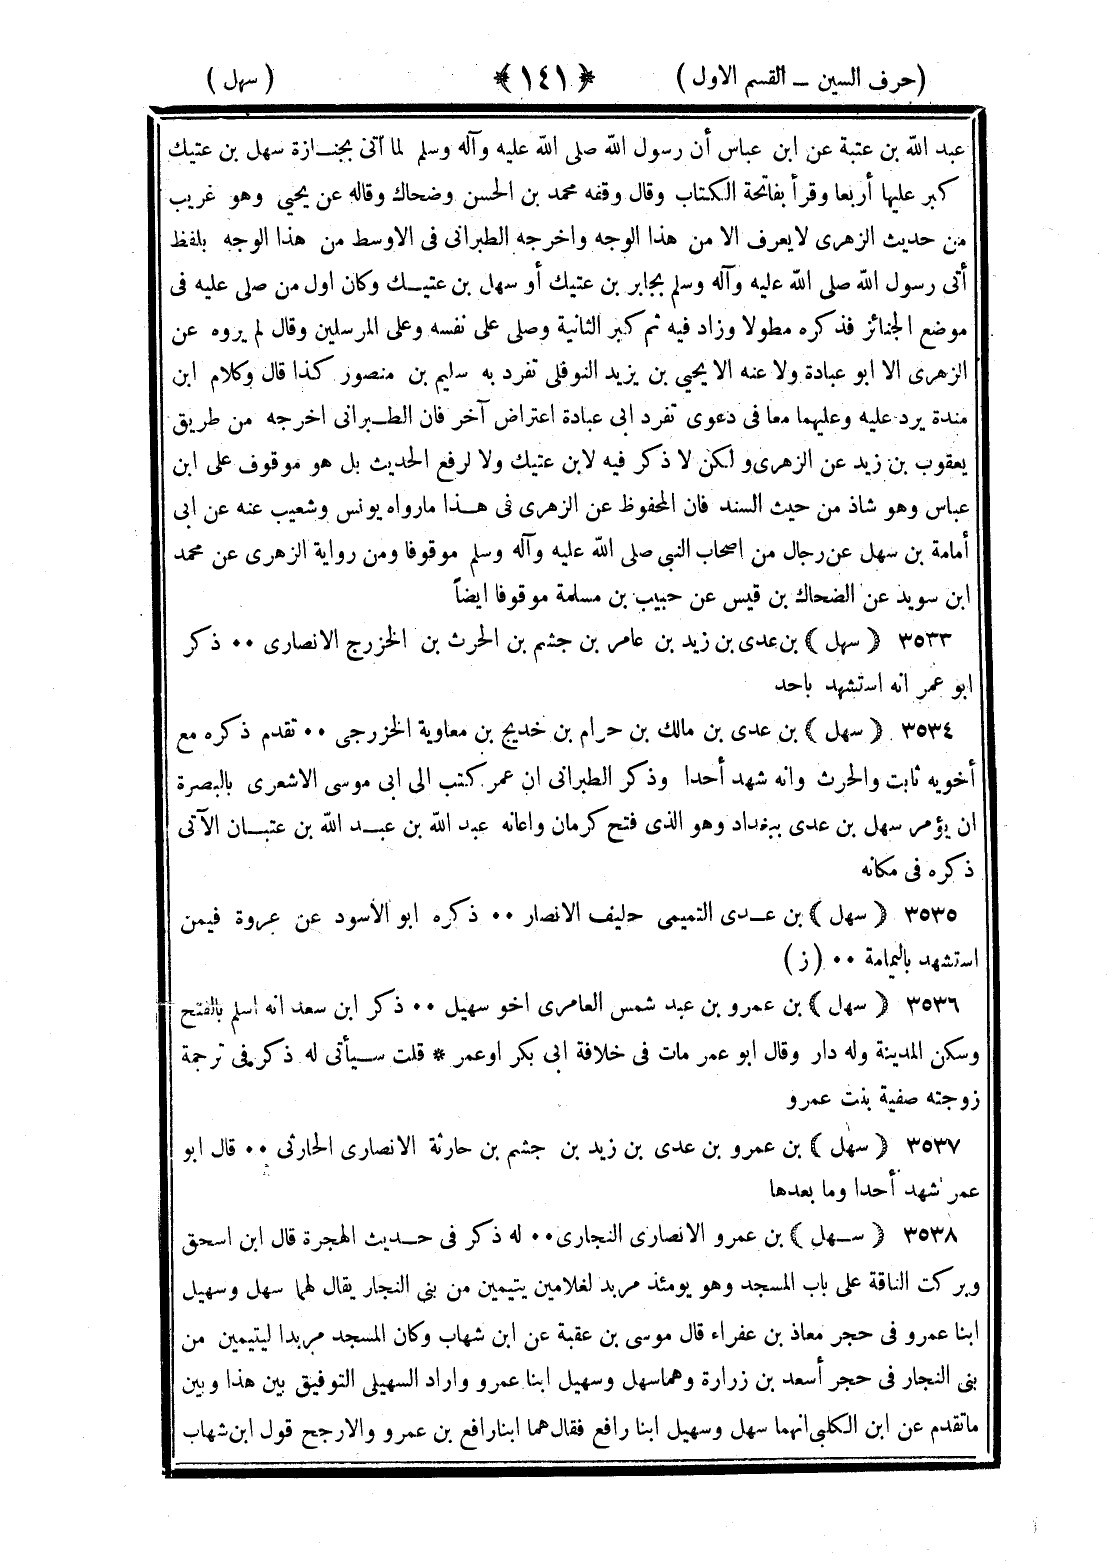 (حرف السين ــ القسم الاول) ﴿١٤١﴾ (سهل)
عبد الله بن عتبة عن ابن عباس أن رسول الله صلى الله عليه وآله وسلم لما أتى بجنازة سهل بن عتيك
كبر عليها أربعا وقرأ بفاتحة الكتاب وقال وقفه محمد بن الحسن وضحاك وقاله عن يحيي وهو غريب
من حديث الزهرى لايعرف الا من هذا الوجه واخرجه الطبرانى فى الاوسط من هذا الوجه بلفظ
أتى رسول الله صلى الله عليه وآله وسلم بجابر بن عتيك أو سهل بن عتيك وكان اول من صلى عليه فى
موضع الجنائز فذكره مطولا وزاد فيه ثم كبر الثانية وصلى على نفسه وعلى المرسلين وقال لم يروه عن
الزهرى الا ابو عبادة ولا عنه الا يحيي بن يزيد النوفلى تفرد به سليم بن منصور كذا قال وكلام ابن
مندة يرد عليه وعليهما معا فى دعوى تفرد ابى عبادة اعتراض آخر فان الطبرانى اخرجه من طريق
يعقوب بن زيد عن الزهرى ولكن لا ذكر فيه لابن عتيك ولا لرفع الحديث بل هو موقوف على ابن
عباس وهو شاذ من حيث السند فان المحفوظ عن الزهرى فى هذا مارواه يونس وشعيب عنه عن ابى
أمامة بن سهل عن رجال من اصحاب النبى صلى الله عليه وآله وسلم موقوفا ومن رواية الزهرى عن محمد
ابن سويد عن الضحاك بن قيس عن حبيب بن مسلمة موقوفا ايضاً
٣٥٣٣ (سهل) بن عدى بن زيد بن عامر بن جشم بن الحرث بن الخزرج الانصارى ٠٠ ذكر
ابو عمر انه استشهد باحد
٣٥٣٤ (سهل) بن عدى بن مالك بن حرام بن خديج بن معاوية الخزرجى ٠٠ تقدم ذكره مع
أخويه ثابت والحرث وانه شهد أحدا وذكر الطبرانى ان عمر كتب الى ابى موسى الاشعرى بالبصرة
ان يؤمر سهل بن عدى ببغداد وهو الذى فتح كرمان واعانه عبد الله بن عبد الله بن عتبان الآتى
ذكره فى مكانه
٣٥٣٥ (سهل) بن عدى التميمى حليف الانصار ٠٠ ذكره ابو الأسود عن عروة فيمن
استشهد باليمامة ٠٠ (ز)
٣٥٣٦ (سهل) بن عمرو بن عبد شمس العامرى اخو سهيل ٠٠ ذكر ابن سعد انه اسلم بالفتح
وسكن المدينة وله دار وقال ابو عمر مات فى خلافة ابى بكر اوعمر * قلت سيأتى له ذكر فى ترجمة
زوجته صفية بنت عمرو
٣٥٣٧ (سهل) بن عمرو بن عدى بن زيد بن جشم بن حارثة الانصارى الحارثى ٠٠ قال ابو
عمر شهد أحدا وما بعدها
٣٥٣٨ (سهل) بن عمرو الانصارى النجارى ٠٠ له ذكر فى حديث الهجرة قال ابن اسحق
وبركت الناقة على باب المسجد وهو يومئذ مربد لغلامين يتيمين من بنى النجار يقال لهما سهل وسهيل
ابنا عمرو فى حجر معاذ بن عفراء قال موسى بن عقبة عن ابن شهاب وكان المسجد مربدا ليتيمين من
بنى النجار فى حجر أسعد بن زرارة وهما سهل وسهيل ابنا عمرو واراد السهيلى التوفيق بين هذا وبين
ماتقدم عن ابن الكلبى انهما سهل وسهيل ابنا رافع فقال هما ابنا رافع بن عمرو والارجح قول ابن شهاب